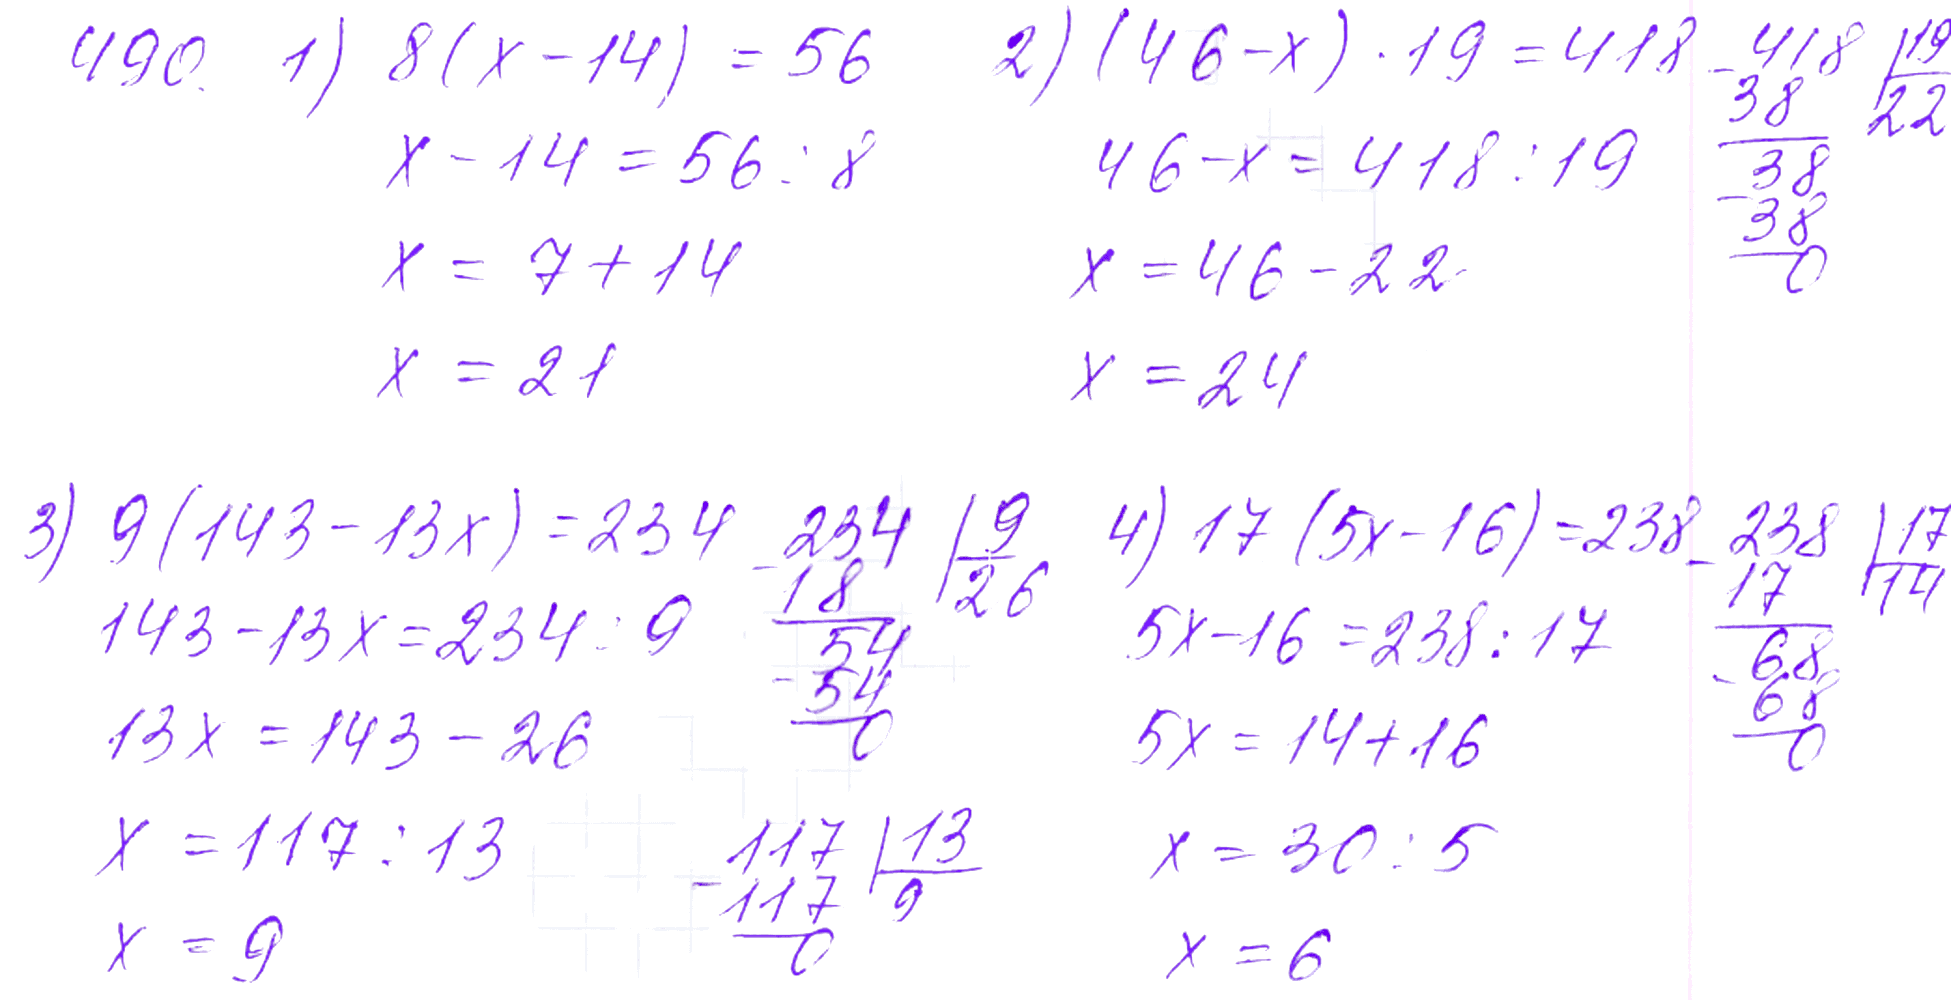 490. 1) 8(x-14) = 56
x-14 = 56:8
x = 7+14
x = 21
2) (46-x)·19 = 418
46-x = 418:19
x = 46-22
x = 24
-418 |19
38 22
38
-38
0
3) 9(143-13x) = 234
143-13x = 234:9
13x = 143-26
x = 117:13
x = 9
-234 |9
18 26
54
-54
0
-117 |13
117 9
0
4) 17(5x-16) = 238
5x-16 = 238:17
5x = 14+16
x = 30:5
x = 6
-238 |17
17 14
68
-68
0